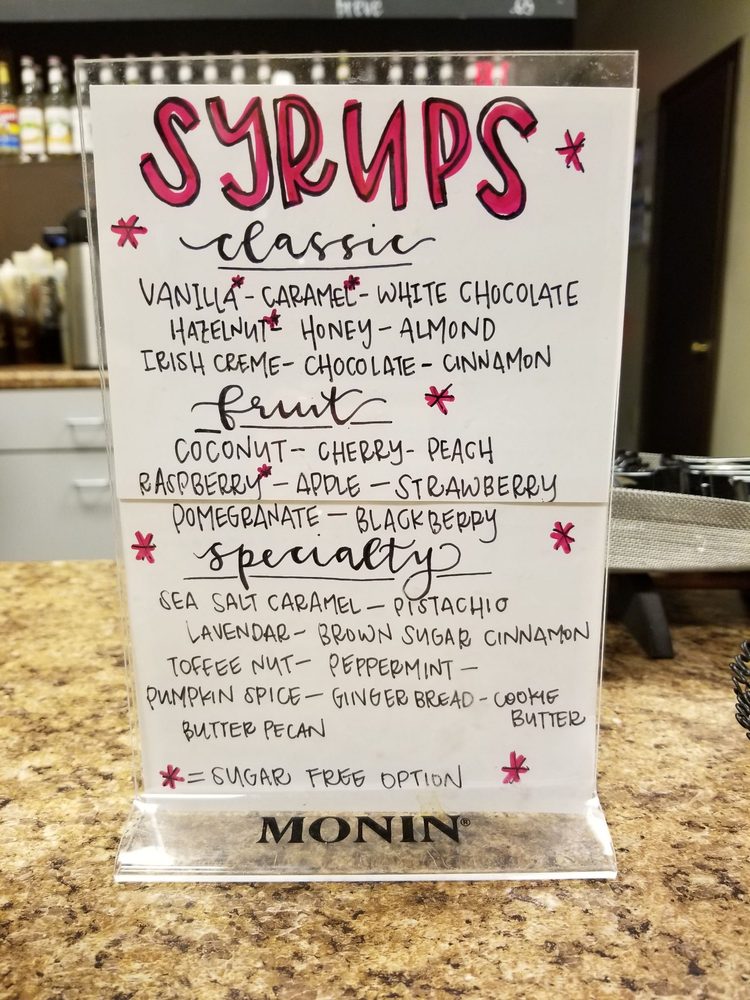 breve .65
SYRUPS *
* classic
VANILLA* - CARAMEL* - WHITE CHOCOLATE
HAZELNUT* - HONEY - ALMOND
IRISH CREME - CHOCOLATE - CINNAMON
fruit *
COCONUT - CHERRY - PEACH
RASPBERRY* - APPLE - STRAWBERRY
POMEGRANATE - BLACKBERRY
* specialty *
SEA SALT CARAMEL - PISTACHIO
LAVENDAR - BROWN SUGAR CINNAMON
TOFFEE NUT - PEPPERMINT -
PUMPKIN SPICE - GINGERBREAD - COOKIE
BUTTER
BUTTER PECAN
* = SUGAR FREE OPTION *
MONIN®